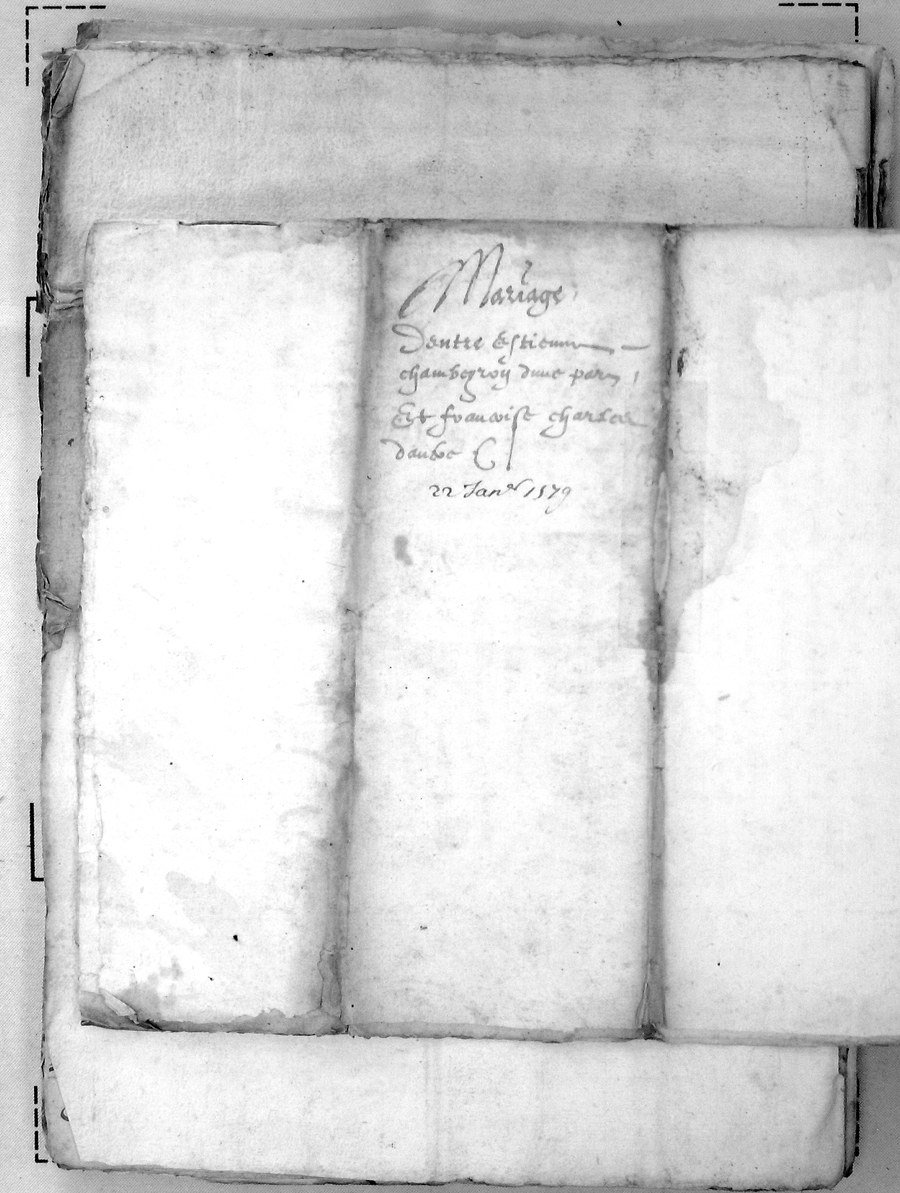 Mariage
Dentre Estienne
chambegroy dune part
Et francoise charles
daultre
22 Janer 1579